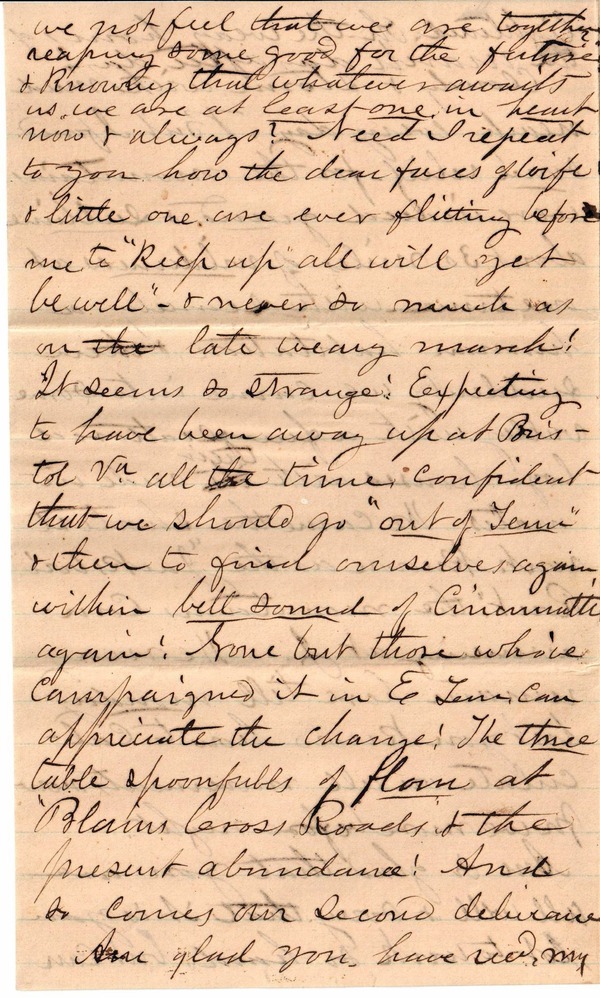 we not feel that we are together
reaping some good for the future
& Knowing that whatever awaits
us, we are at least one in heart
now & always? Need I repeat
to you how the dear faces of wife
& little one are ever flitting before
me to "Keep up" all will yet
be well" - & never so much as
on the late weary march!
It seems so strange! Expecting
to have been away up at Bris-
tol Va. all the time, confident
that we should go "out of Tenn"
& then to find ourselves again
within bell sound of Cincinnatti
again! None but those who've
campaigned it in E Tenn, can
appreciate the change! The three
table spoonfulls of flour at
"Blains Cross Roads" & the
present abundance! And
so comes our second deliverance
Am glad you have recd. my